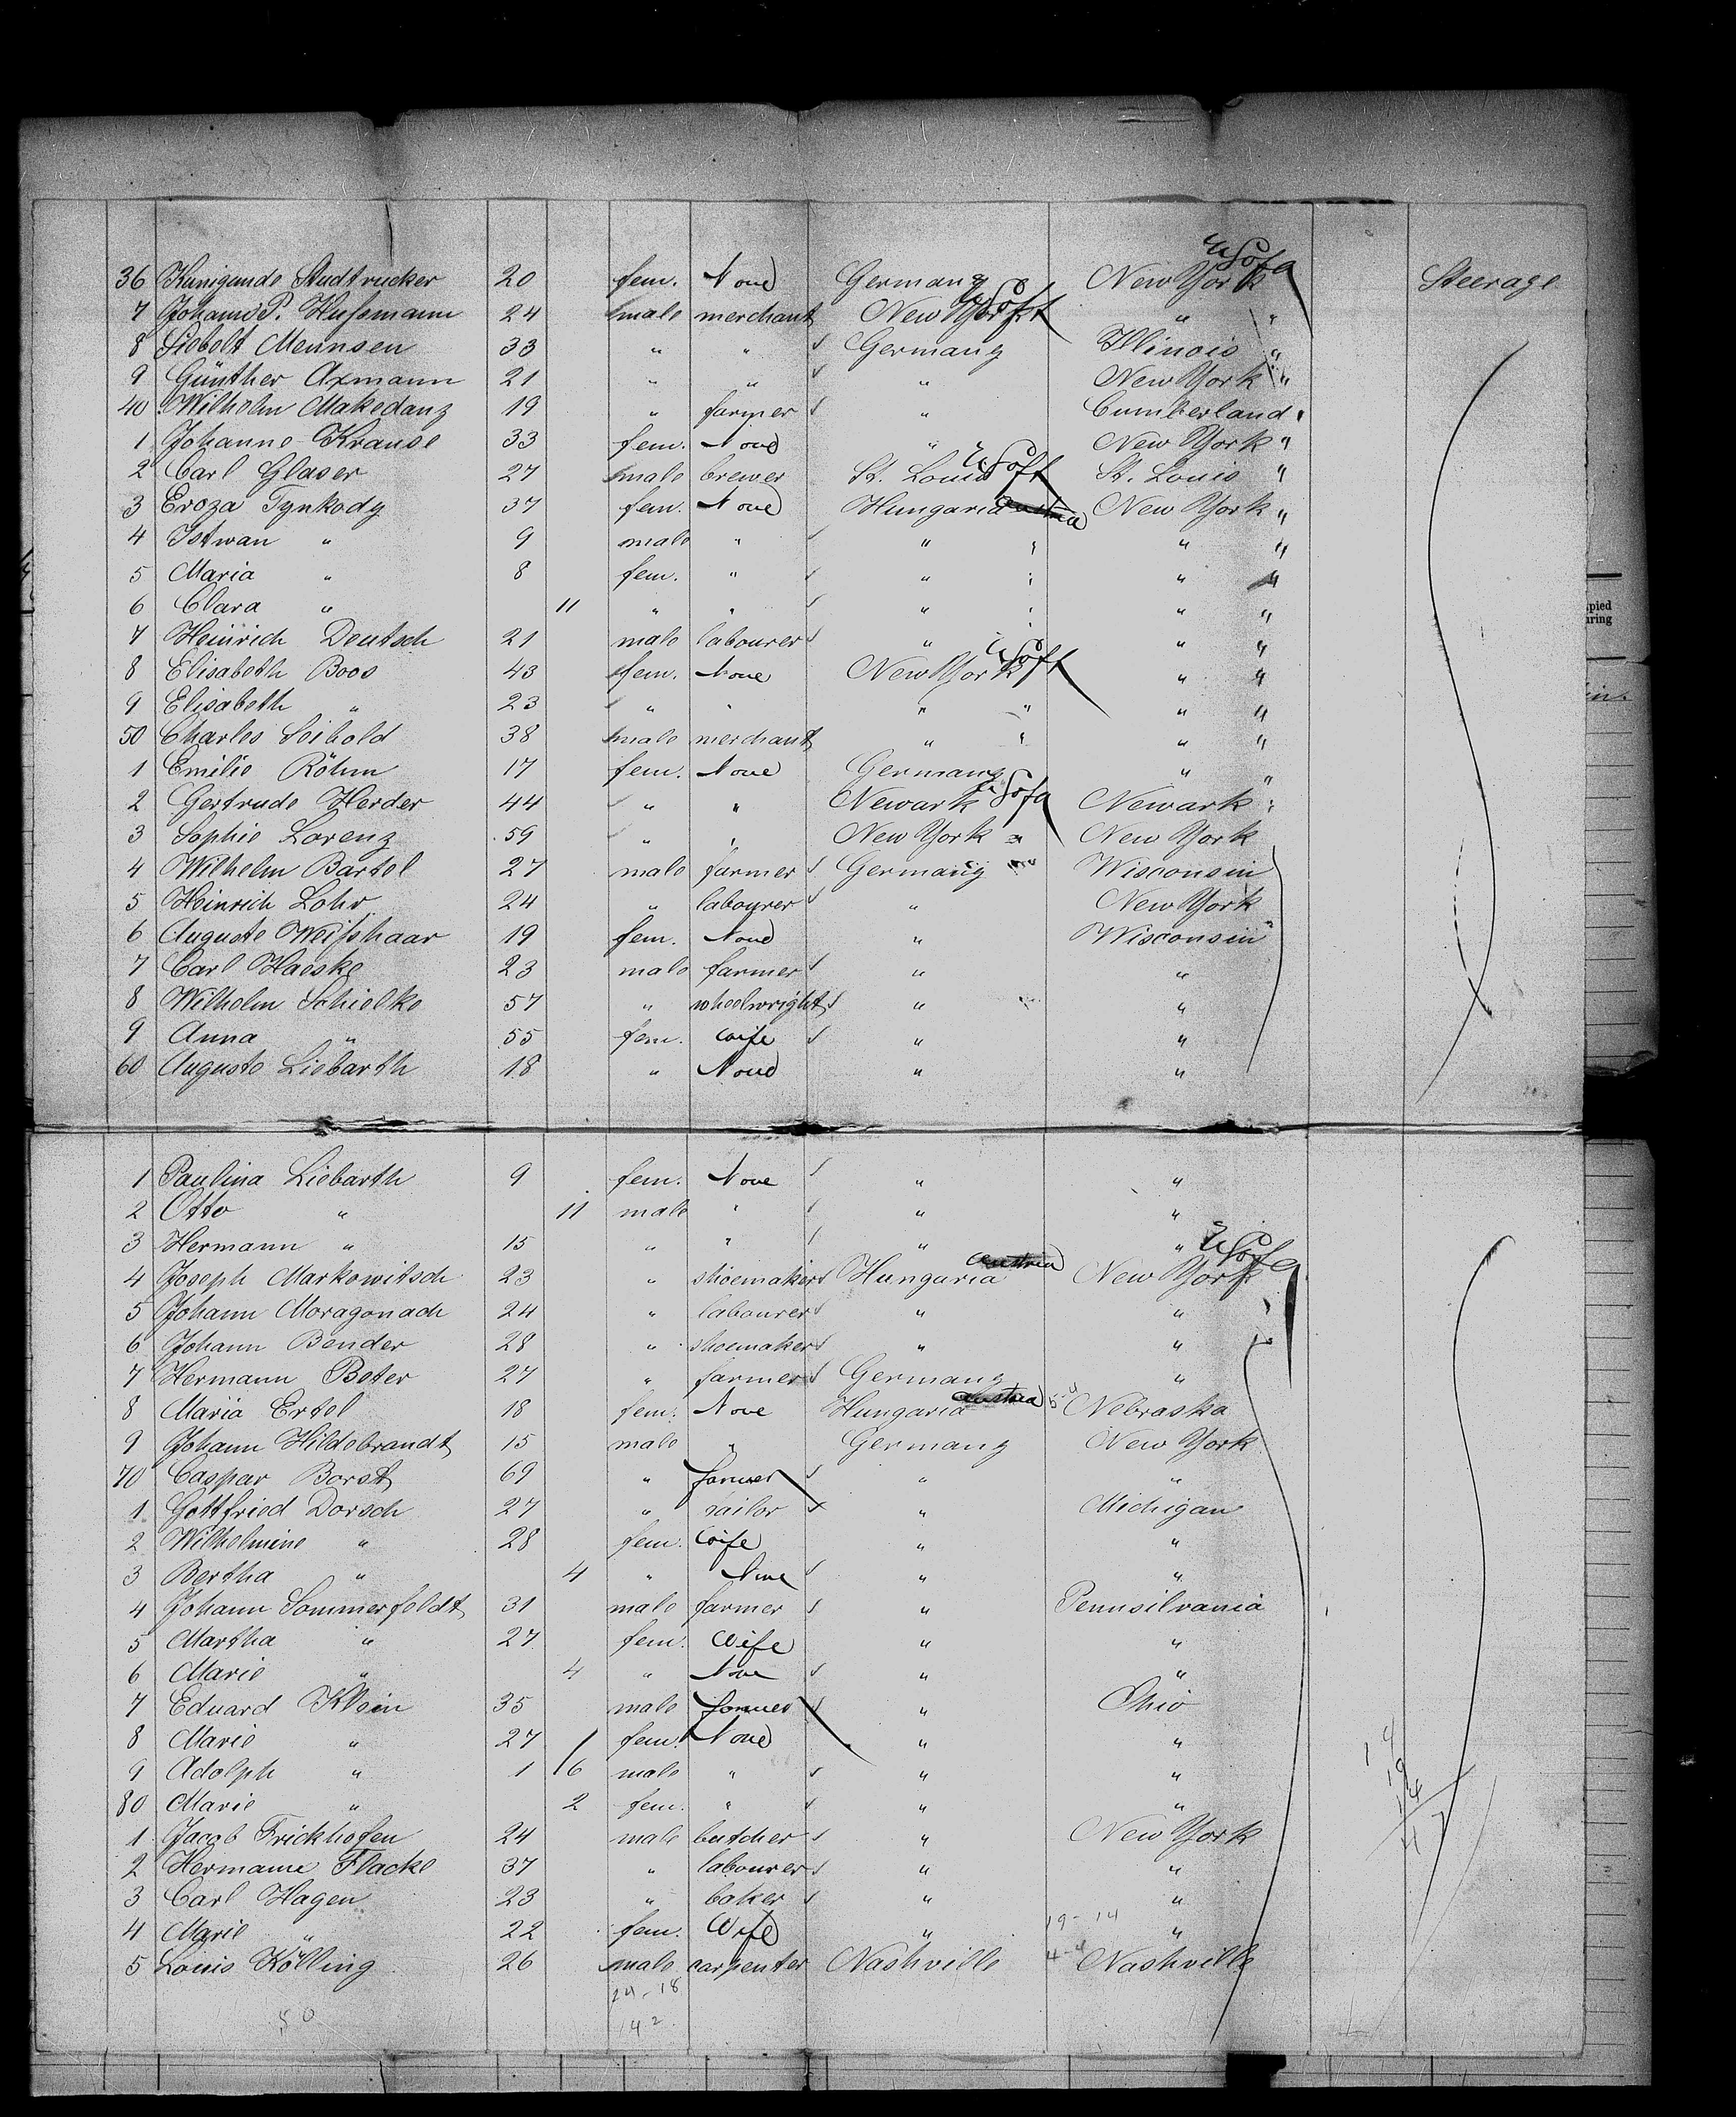 U S of A
36 Kunigunde Studtrucker 20 fem. None Germany New York Steerage
7 Johann P. Hußmann 24 male merchant New York U S of A " "
8 Siebolt Meunsen 33 " " Germany Illinois "
9 Günther Axmann 21 " " " New York "
40 Wilhelm Makedanz 19 " farmer " Cumberland "
1 Johanne Krause 33 fem. None " New York "
2 Carl Glaser 27 male brewer St. Louis U S of A St. Louis "
3 Eroza Tynkody 37 fem. None Hungaria Austria New York "
4 Istwan " 9 male " " " " "
5 Maria " 8 fem. " " " " "
6 Clara " 11 " " " " " "
7 Heinrich Deutsch 21 male labourer " " "
8 Elisabeth Boos 43 fem. None New York U S of A " "
9 Elisabeth " 23 " " " " " "
50 Charles Seibold 38 male merchant " " " "
1 Emilie Röhm 17 fem. None Germany " "
2 Gertrude Herder 44 " " Newark U S of A Newark "
3 Sophie Lorenz 59 " " New York " New York
4 Wilhelm Bartel 27 male farmer Germany Wisconsin
5 Heinrich Lohr 24 " labourer " New York
6 Auguste Weißhaar 19 fem. None " Wisconsin
7 Carl Haeske 23 male farmer " "
8 Wilhelm Schielke 57 " wheelwright " "
9 Anna " 55 fem. wife " "
60 Auguste Liebarth 18 " None " "
1 Paulina Liebarth 9 fem. None " "
2 Otto " 11 male " " "
3 Hermann " 15 " " " " U S of A
4 Joseph Markowitsch 23 " shoemaker Hungaria Austria New York
5 Johann Moragonach 24 " labourer " " "
6 Johann Bender 28 " shoemaker " "
7 Hermann Beter 27 " farmer Germany "
8 Maria Ertel 18 fem. None Hungaria Austria Nebraska
9 Johann Hildebrandt 15 male " Germany New York
70 Caspar Borst 69 " farmer " "
1 Gottfried Dorsch 27 " tailor " Michigan
2 Wilhelmine " 28 fem. Wife " "
3 Bertha " 4 " None " "
4 Johann Sommerfeldt 31 male farmer " Pennsilvania
5 Martha " 27 fem. Wife " "
6 Marie " 4 " None " "
7 Eduard Klein 35 male farmer " Ohio
8 Marie " 27 fem. None " "
9 Adolph " 1 /6 male " " "
80 Marie " 2 fem. " " "
1 Jacob Frickhofen 24 male butcher " New York
2 Hermann Flacke 37 " labourer " "
3 Carl Hagen 23 " baker " "
4 Marie " 22 fem. Wife " 19-14 "
5 Louis Kölling 26 male carpenter Nashville 4-4 Nashville
24-18
50 142